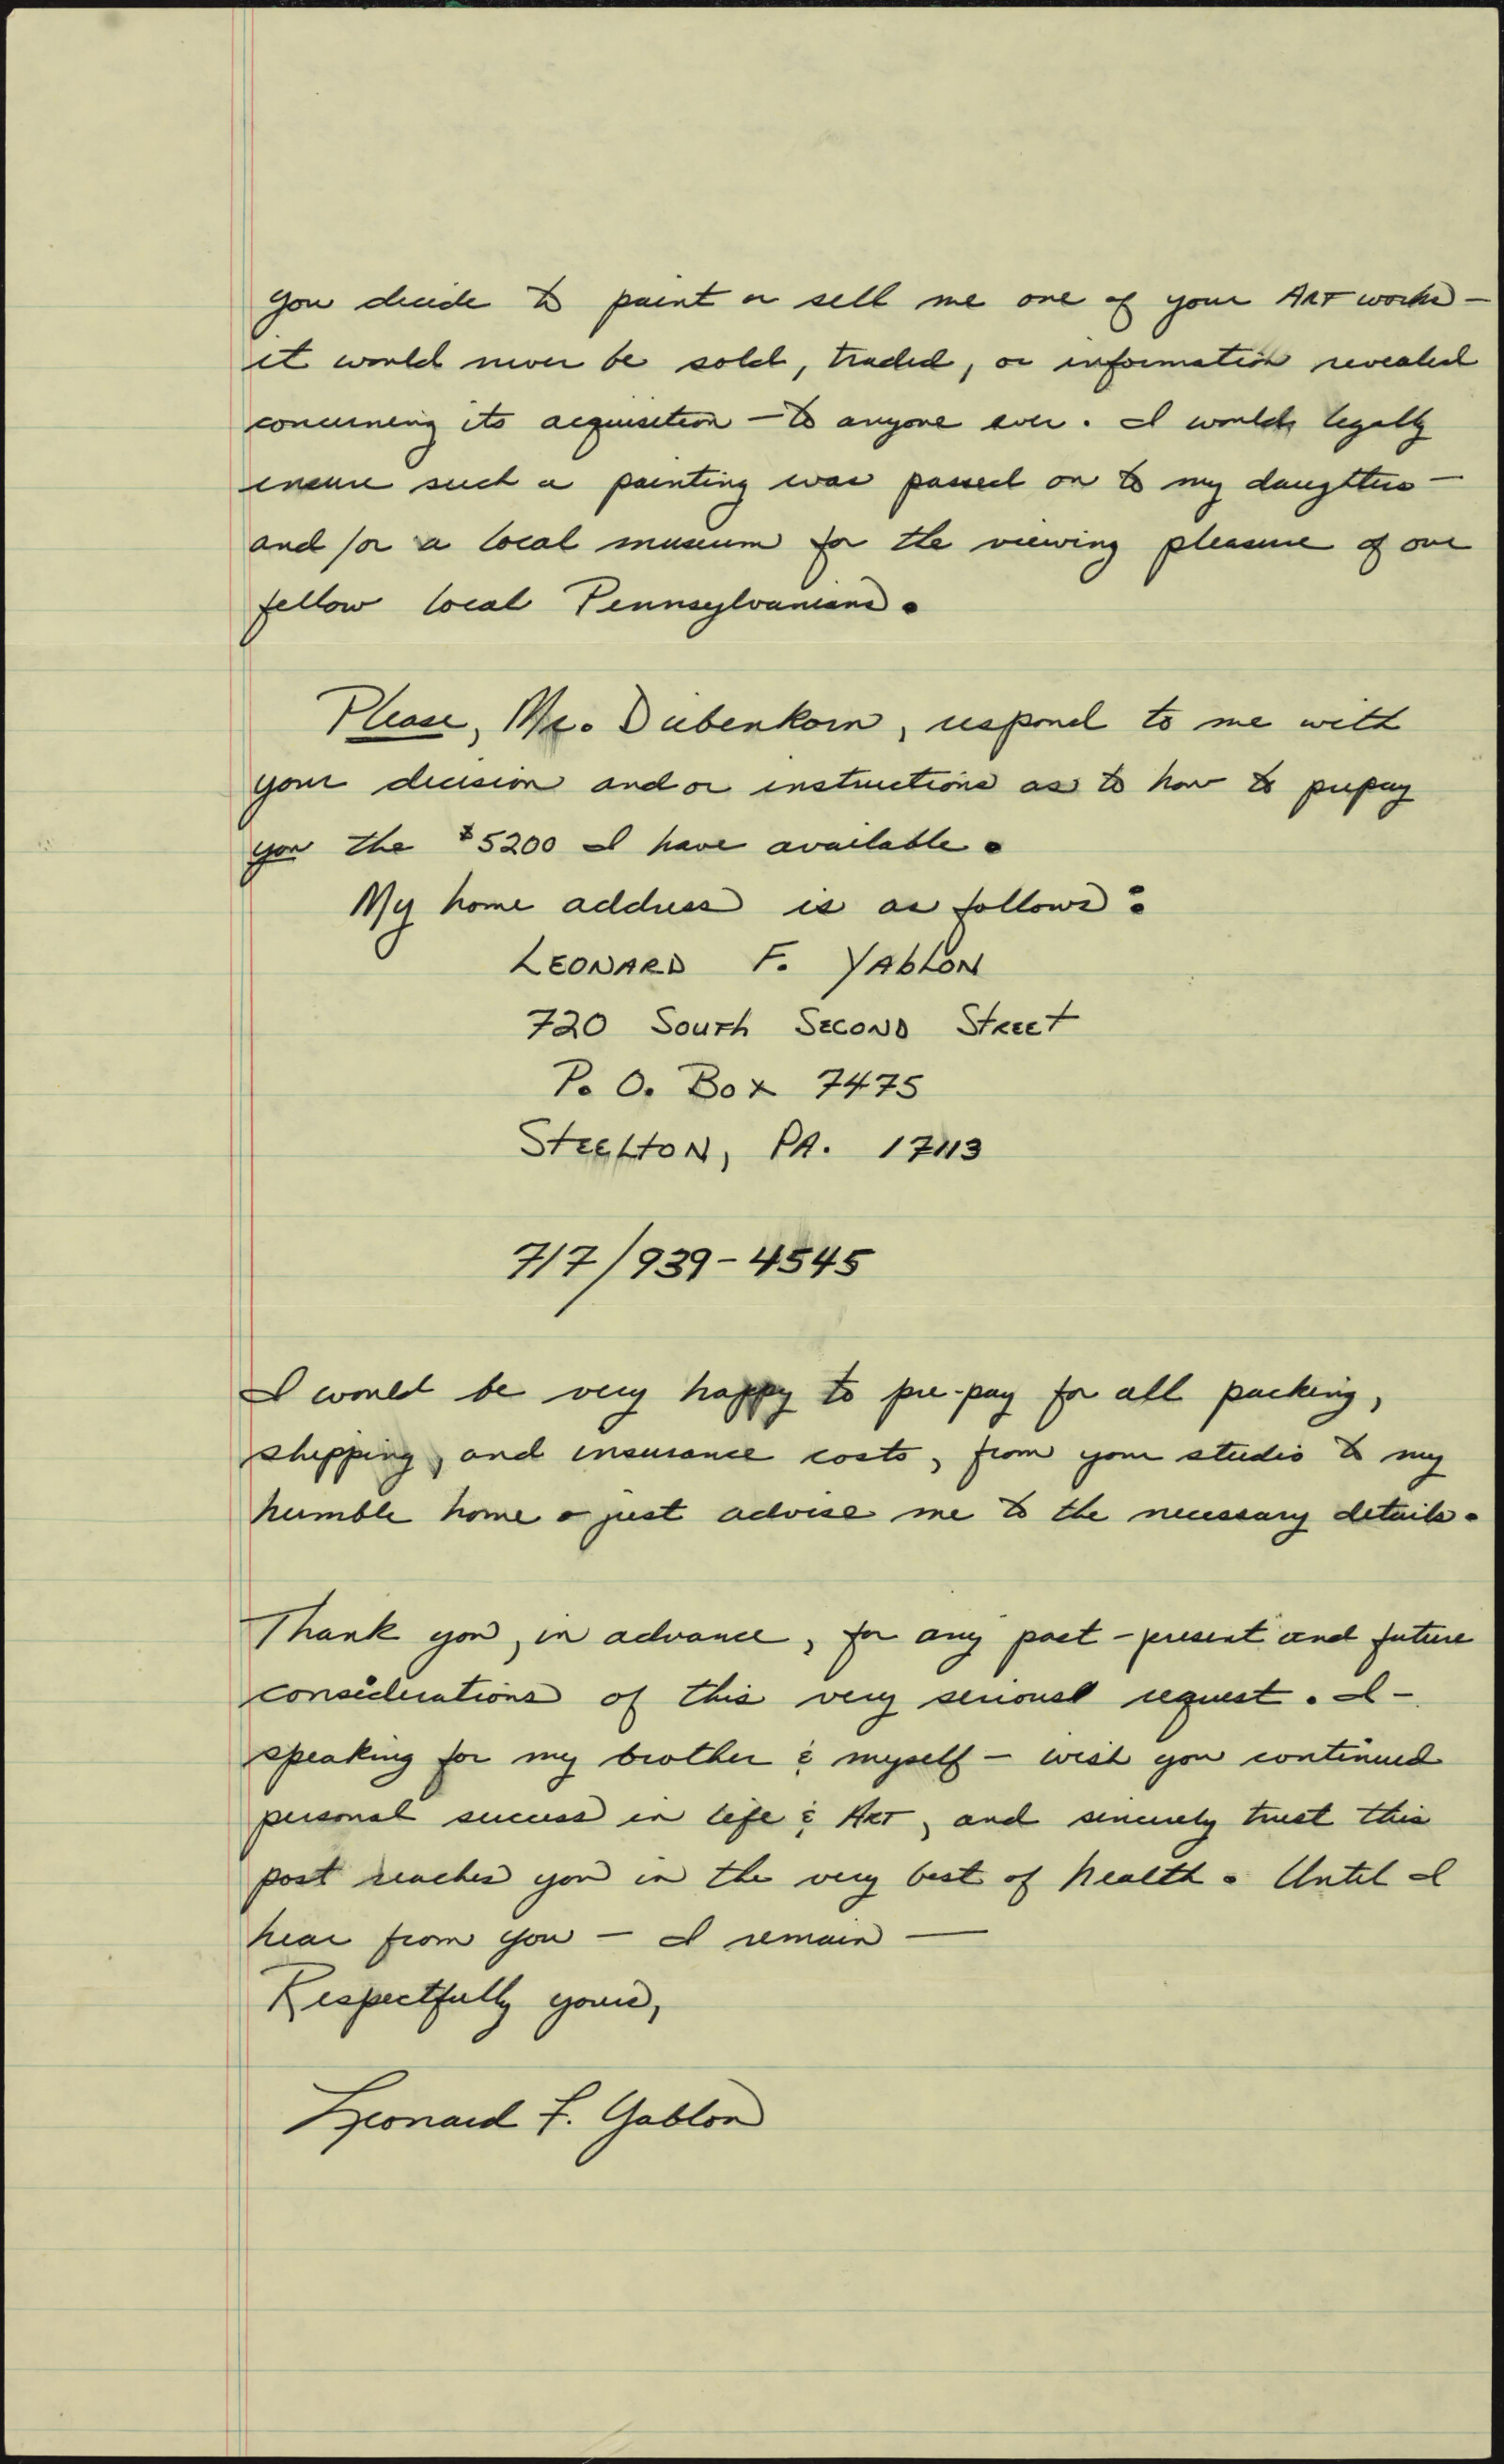 you decide to paint or sell me one of your ART works —
it would never be sold, traded, or information revealed
concerning its acquisition — to anyone ever. I would legally
ensure such a painting was passed on to my daughters —
and/or a local museum for the viewing pleasure of our
fellow local Pennsylvanians.
Please, Mr. Diebenkorn, respond to me with
your decision and or instructions as to how to prepay
you the $5200 I have available.
My home address is as follows:
LEONARD F. YABLON
720 SOUTH SECOND STREET
P. O. Box 7475
STEELTON, PA. 17113
717/939-4545
I would be very happy to pre-pay for all packing,
shipping, and insurance costs, from your studio to my
humble home. just advise me to the necessary details.
Thank you, in advance, for any past - present and future
considerations of this very serious request. I -
speaking for my brother & myself — wish you continued
personal success in life & ART, and sincerely trust this
post reaches you in the very best of health. Until I
hear from you — I remain —
Respectfully yours,
Leonard F. Yablon